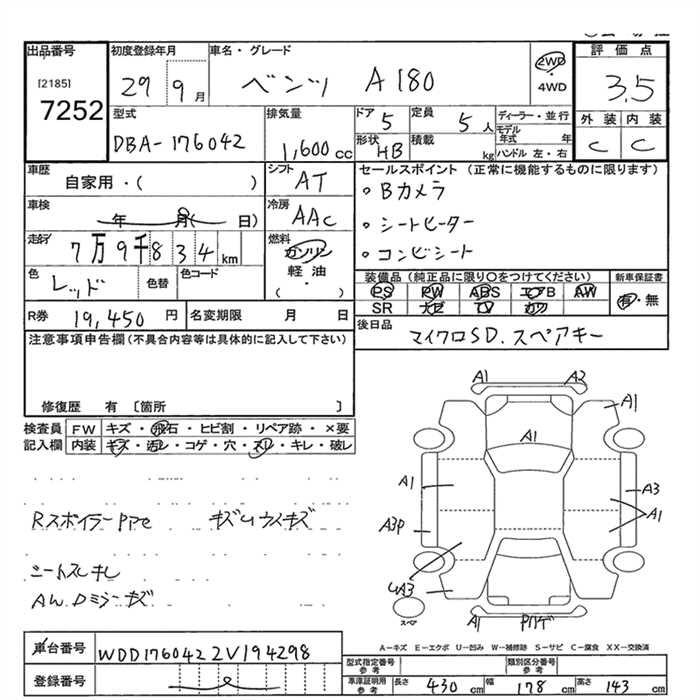 出品番号
[2185]
7252
初度登録年月
29 9月
車名・グレード
ベンツ A180
2WD
・
4WD
評価点
3.5
外装 内装
C C
型式
DBA-176042
排気量
1,600cc
ドア
5
定員
5人
形状
HB
積載
kg
ディーラー・並行
モデル年式 年
ハンドル 左・右
車歴
自家用・( )
シフト
AT
車検
年 月( 日)
冷房
AAC
走行
7万9千834km
燃料
ガソリン
軽・油
( )
色
レッド
色替
色コード
R券 19,450円
名変期限 月 日
セールスポイント (正常に機能するものに限ります)
・Bカメラ
・シートヒーター
・コンビシート
装備品(純正品に限り○をつけてください)
PS PW ABS エアB AW
SR ナビ TV カワ
新車保証書
有・無
後日品
マイクロSD.スペアキー
注意事項申告欄(不具合内容等は具体的に記入して下さい)
修復歴 有〔箇所 〕
検査員記入欄
FW キズ・飛石・ヒビ割・リペア跡・×要
内装 キズ・汚レ・コゲ・穴・スレ・キレ・破レ
Rスポイラー
キズ
AW.Dミラーキズ
A1 A2
A1
A1
A1
A3
A1
A3P
A3
A1
スペア
A-キズ E-エクボ U-凹み W-補修跡 S-サビ C-腐食 XX-交換済
車台番号 WDD1760422V194298
登録番号
型式指定番号 参考
類別区分番号 参考
車庫証明用 参考
長さ 430cm 幅 178cm 高さ 143cm